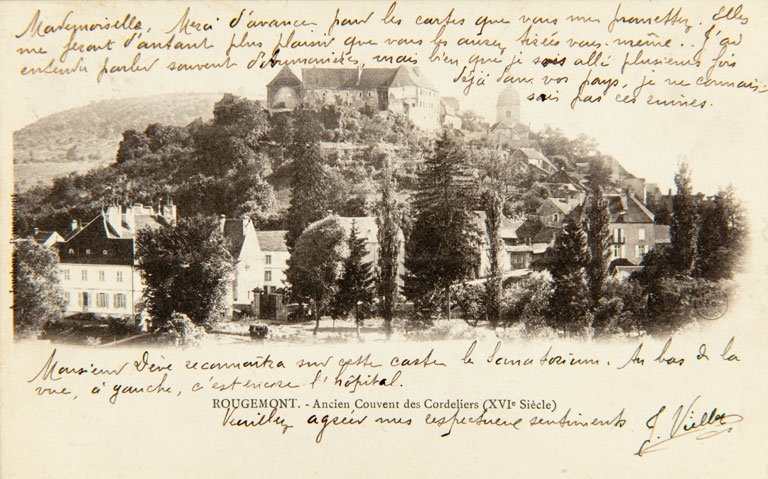 Mademoiselle, Merci d'avance pour les cartes que vous me promettez. Elles
me feront d'autant plus plaisir que vous les aurez tirées vous-même. J'ai
entendu parler souvent, mais bien que je sois allé plusieurs fois
déjà dans vos pays, je ne connais-
sais pas ces ruines.
Monsieur Dève reconnaîtra sur cette carte le Sanatorium. Au bas de la
vue, à gauche, c'est encore l'hôpital.
ROUGEMONT. - Ancien Couvent des Cordeliers (XVIe Siècle)
Veuillez agréer mes respectueux sentiments